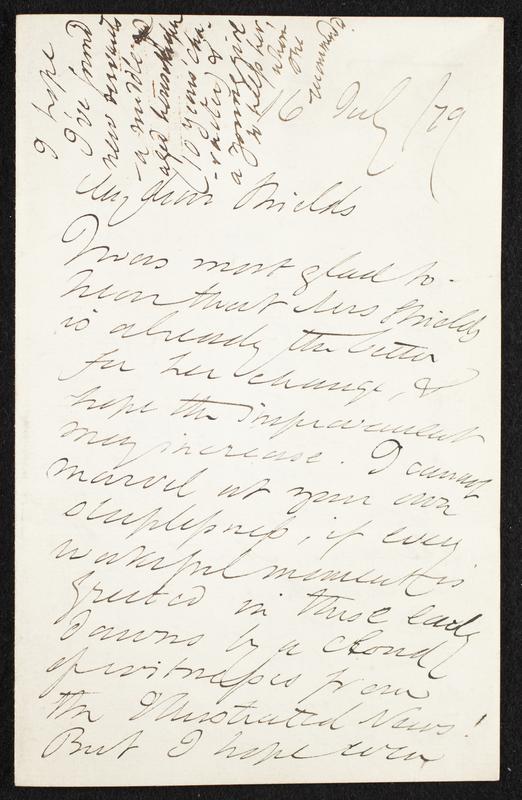 I hope
I've found
new servants
- a middle
aged housekeeper
(10 years cha-
-racter) &
a young girl
to help her,
whom
she
recommends.
16 July /79
My dear Shields
I was most glad to
hear that Mrs Shields
is already the better
for her change, &
hope the improvement
may increase. I cannot
marvel at your own
sleeplessness, if every
wakeful moment is
greeted in these early
dawns by a cloud
of witnesses from
the Illustrated News!
But I hope even